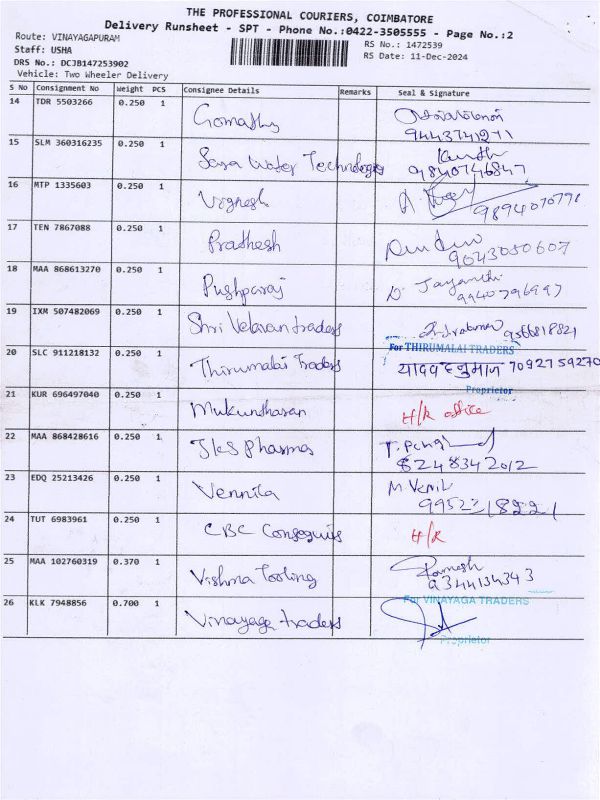 THE PROFESSIONAL COURIERS, COIMBATORE
Delivery Runsheet - SPT - Phone No.:0422-3505555 - Page No.:2
Route: VINAYAGAPURAM
Staff: USHA
RS No.: 1472539
DRS No.: DCJB147253902
RS Date: 11-Dec-2024
Vehicle: Two Wheeler Delivery
S No Consignment No Weight PCS Consignee Details Remarks Seal & Signature
14 TDR 5503266 0.250 1 Gomathy
9443741271
15 SLM 360316235 0.250 1 Sara Water Technologies
9840746847
16 MTP 1335603 0.250 1 Vignesh
9894070791
17 TEN 7867088 0.250 1 Prathesh
9043050607
18 MAA 868613270 0.250 1 Pushparaj D. Jayanthi
9940796997
19 IXM 507482069 0.250 1 Shri Velavan traders 9566818821
20 SLC 911218132 0.250 1 Thirumalai Traders For THIRUMALAI TRADERS
यादव हनुमान 7092759270
Proprietor
21 KUR 696497040 0.250 1 Mukundharan H/R office
22 MAA 868428616 0.250 1 JKS Pharma
8248342012
23 EDQ 25213426 0.250 1 Vennila
24 TUT 6983961 0.250 1 CBC H/R
25 MAA 102760319 0.370 1 Vishma Tooling Ramesh
9344134343
26 KLK 7948856 0.700 1 Vinayaga traders For VINAYAGA TRADERS
Proprietor